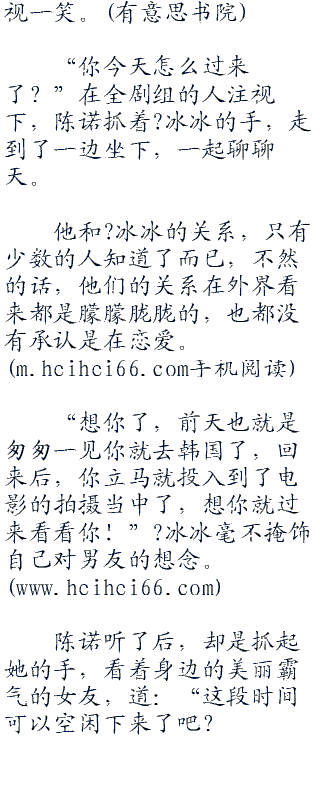 视一笑。(有意思书院)
“你今天怎么过来
了？”在全剧组的人注视
下，陈诺抓着?冰冰的手，走
到了一边坐下，一起聊聊
天。
他和?冰冰的关系，只有
少数的人知道了而已，不然
的话，他们的关系在外界看
来都是朦朦胧胧的，也都没
有承认是在恋爱。
(m.hcihci66.com手机阅读)
“想你了，前天也就是
匆匆一见你就去韩国了，回
来后，你立马就投入到了电
影的拍摄当中了，想你就过
来看看你！”?冰冰毫不掩饰
自己对男友的想念。
(www.hcihci66.com)
陈诺听了后，却是抓起
她的手，看着身边的美丽霸
气的女友，道：“这段时间
可以空闲下来了吧？